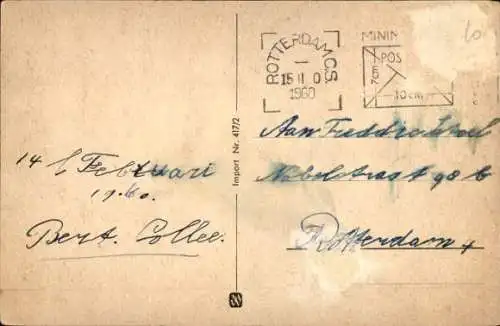 ROTTERDAM C.S.
15 II 0
1960
MINIM
POS
10 cm
14 Februari
1960.
Bert. Collee.
Import Nr. 417/2
Aan Freddie
Nobelstraat 98 b
Rotterdam
10